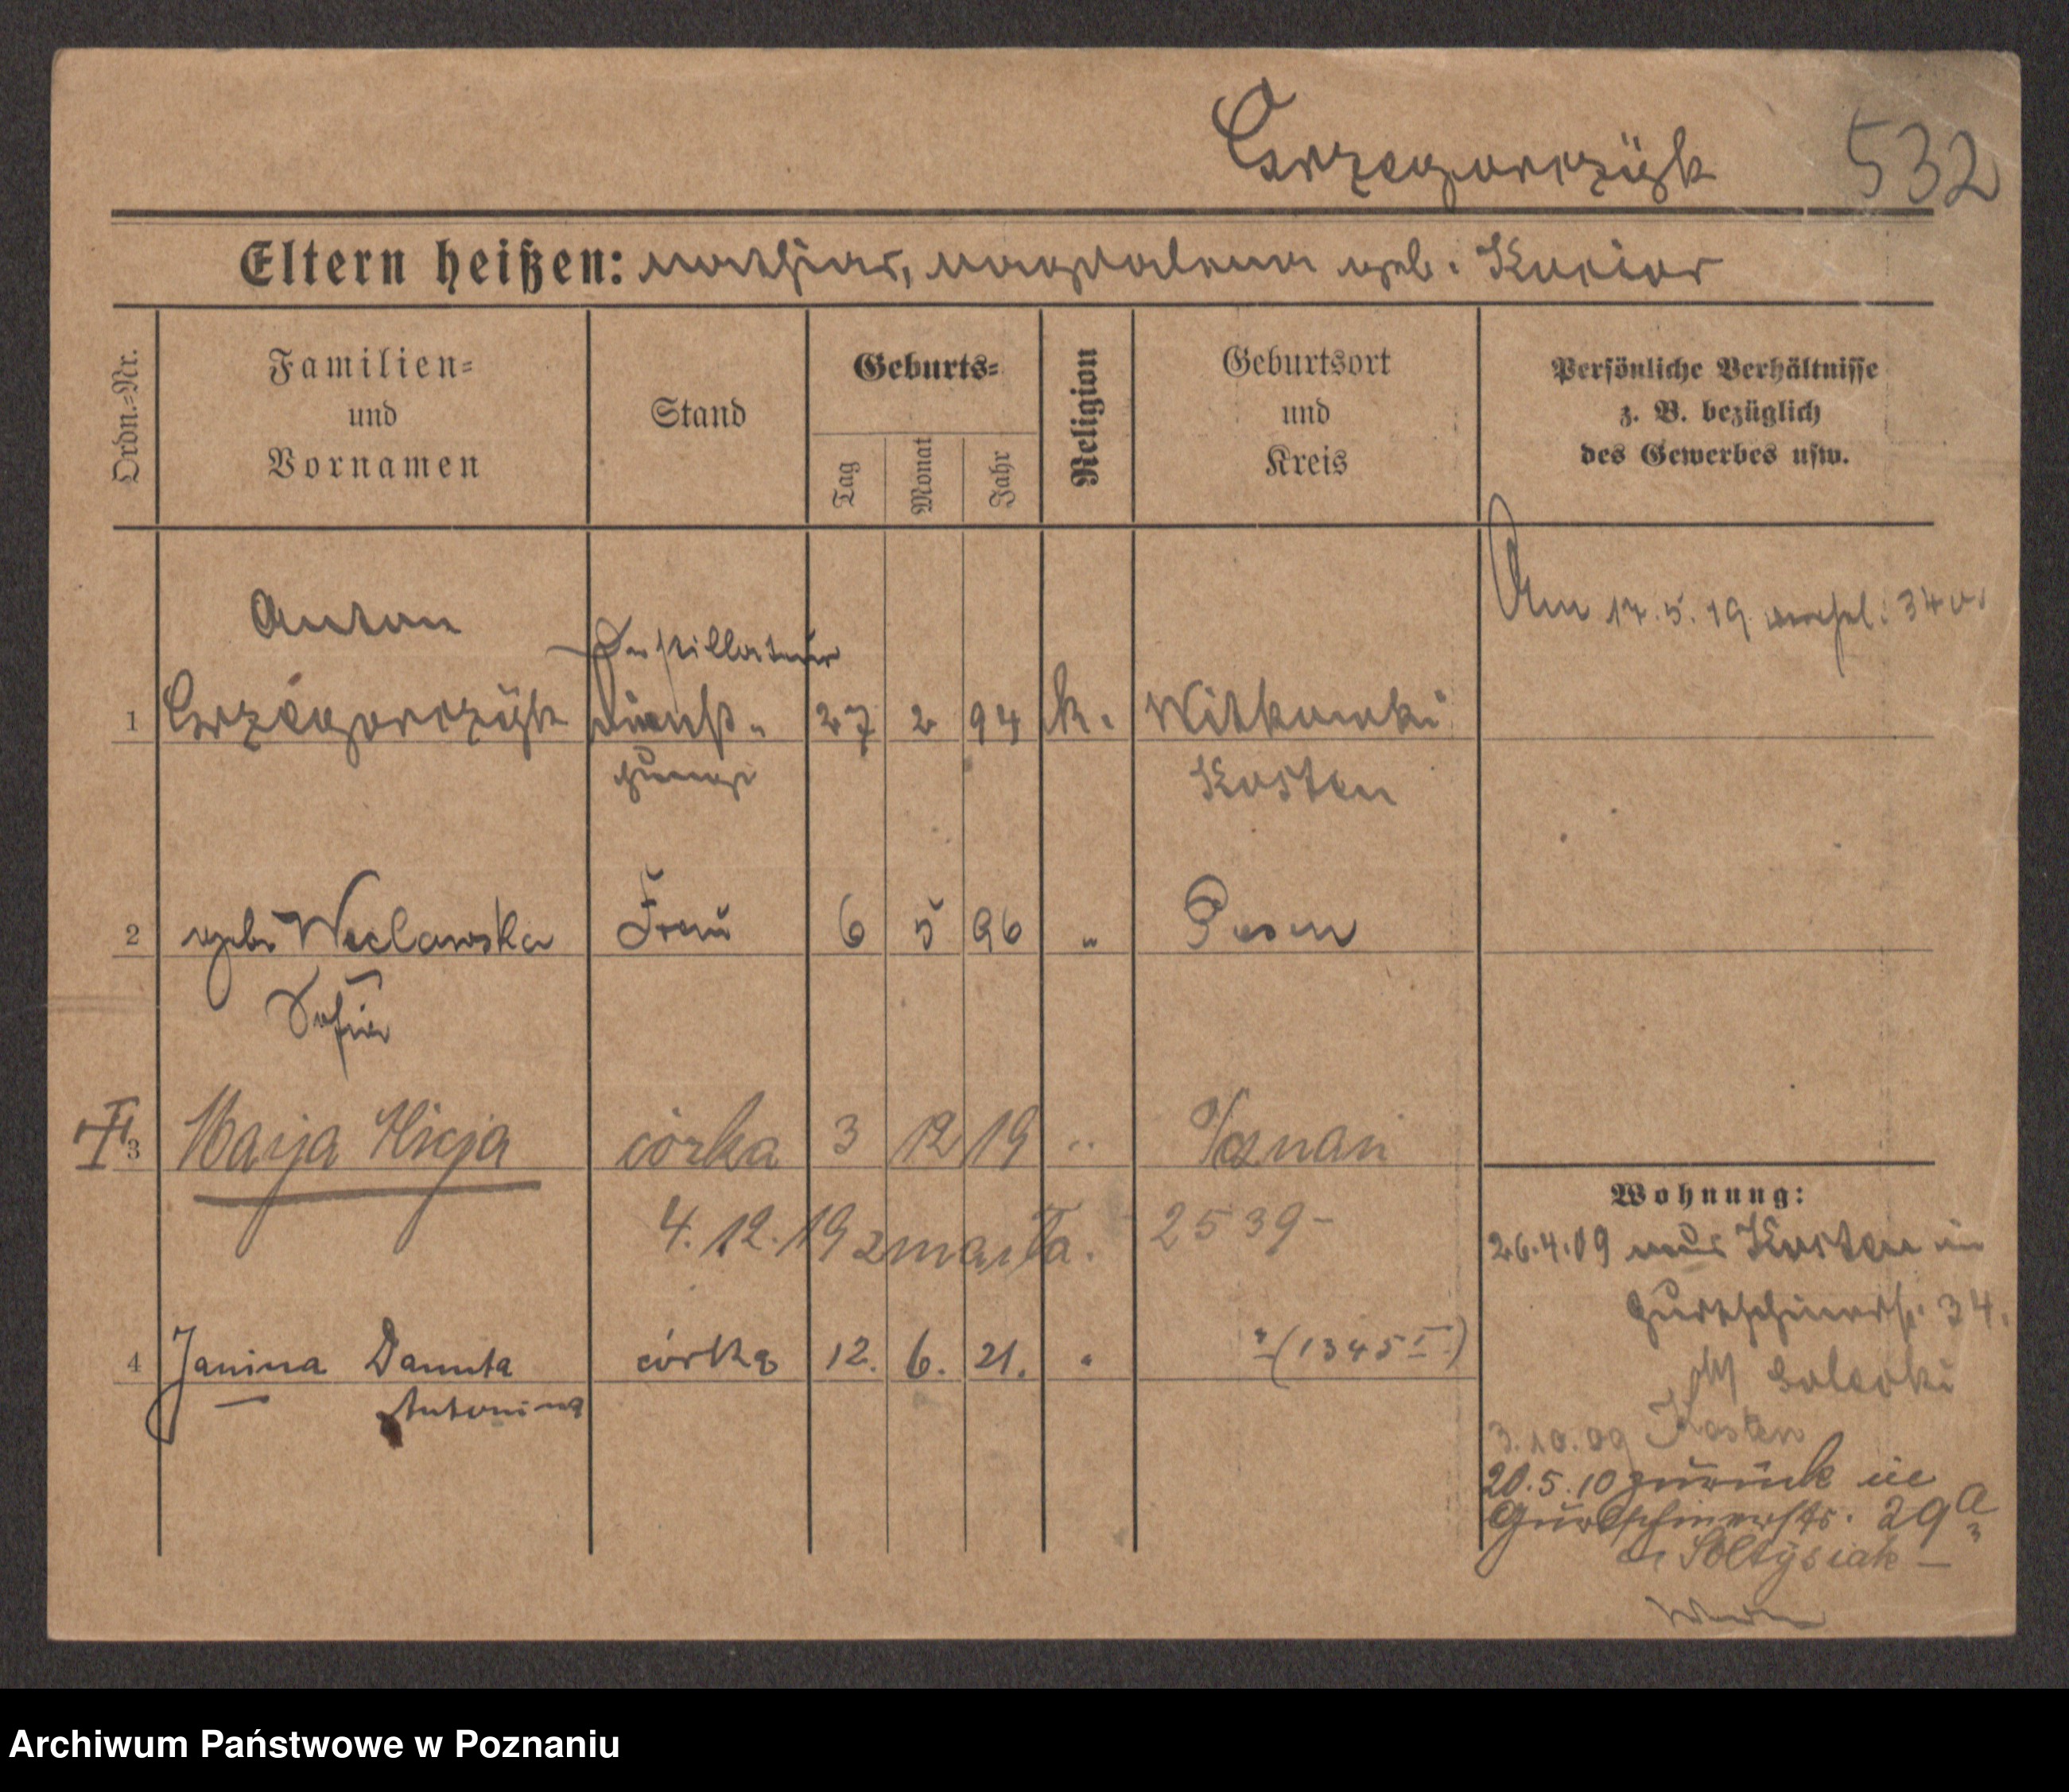 Grzegorczyk 532
Eltern heißen: Mathias, Magdalena geb. Kucior
Ordn.-Nr.
Familien-
und
Vornamen
Stand
Geburts-
Tag
Monat
Jahr
Religion
Geburtsort
und
Kreis
Persönliche Verhältnisse
z. B. bezüglich
des Gewerbes usw.
Am 17.5.19 34
Anton
Destillateur
1 Grzegorczyk Dienst- 27 2 94 k. Witkowki
junge Kosten
2 geb. Weclawska Frau 6 5 96 " Posen
Sofie
3 Marja Alicja córka 3 12 19 " Poznań
4.12.19 zmarła. 2539-
4 Janina Danuta córka 12. 6. 21. " " (1345 I)
Antonina
Wohnung:
26.4.09 aus Kosten in
Gurtschinerstr. 34.
Kosten
3.10.09
20.5.10 zurück in
Gurtschinerstr. 29a
Soltysiak
Archiwum Państwowe w Poznaniu